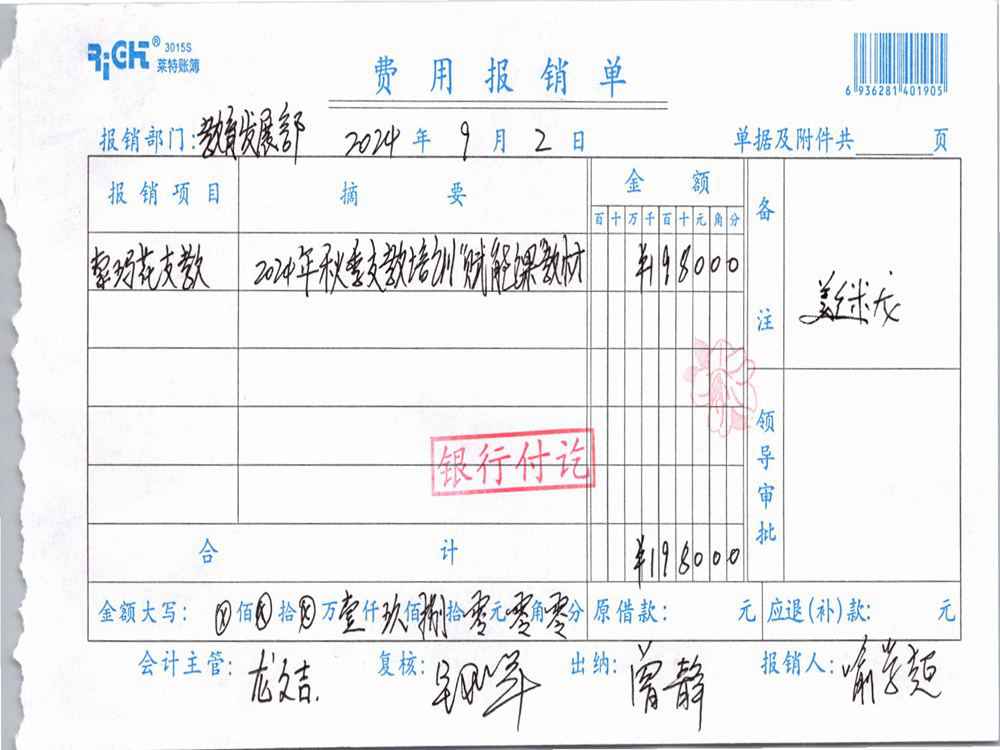 RiCH® 3015S
莱特账簿
费用报销单
6 936281 401905
报销部门:教育发展部 2024 年 9 月 2 日 单据及附件共 页
报销项目 摘要 金额 备注
百 十 万 千 百 十 元 角 分
索玛花支教 2024年秋季支教培训"赋能课"教材 ¥198000
姜继龙
领导审批
银行付讫
合计 ¥198000
金额大写: ⊗佰⊗拾⊗万壹仟玖佰捌拾零元零角零分 原借款: 元 应退(补)款: 元
会计主管: 龙文吉 复核: 出纳: 曾静 报销人: 喻学超